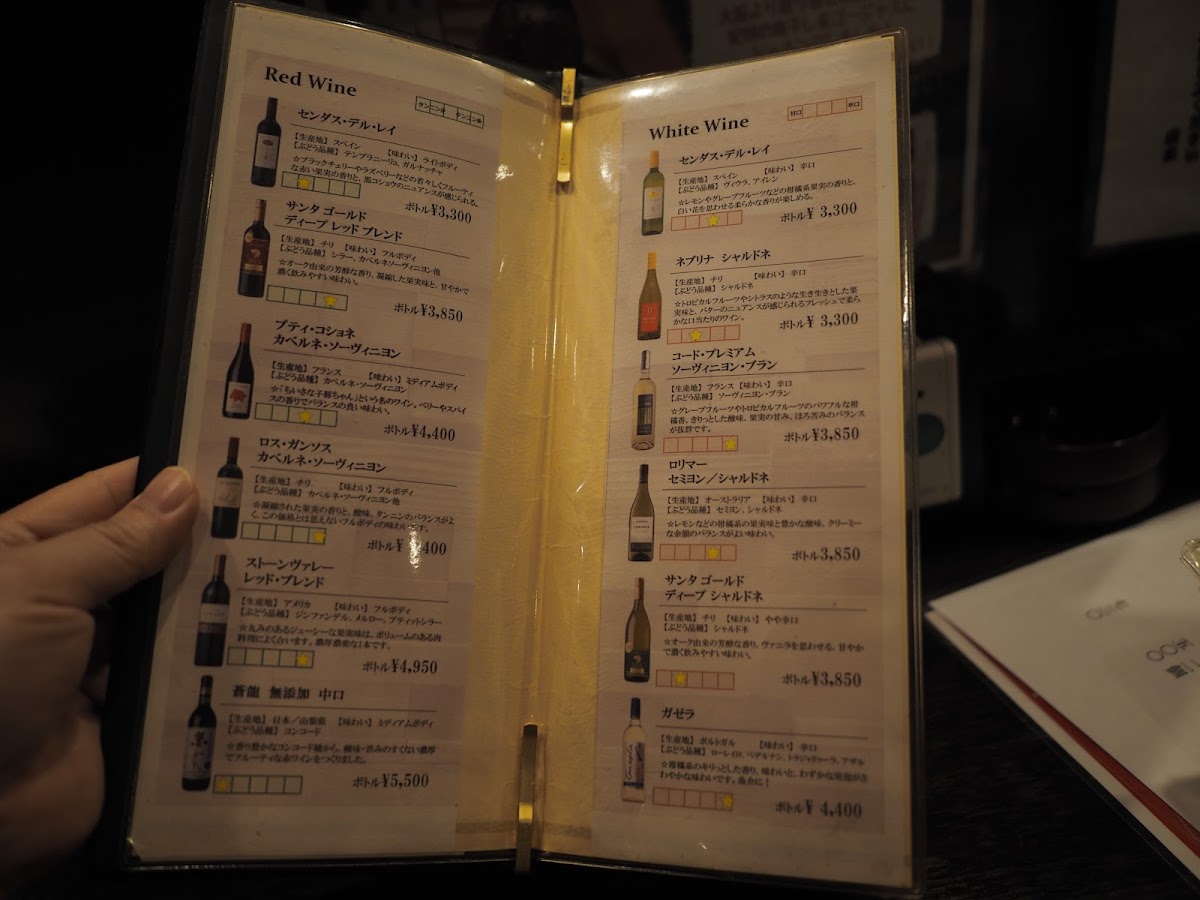 Red Wine
センダス・デル・レイ
【生産地】スペイン 【味わい】ライトボディ
【ぶどう品種】テンプラニーリョ、ガルナッチャ
☆ブラックチェリーやラズベリーなどの若々しくフルーティ
な赤い果実の香りと、黒コショウのニュアンスが感じられる。
ボトル¥3,300
サンタ ゴールド
ディープ レッド ブレンド
【生産地】チリ 【味わい】フルボディ
【ぶどう品種】シラー、カベルネソーヴィニヨン他
☆オーク由来の芳醇な香り、凝縮した果実味と、甘やかで
濃く飲みやすい味わい。
ボトル¥3,850
プティ・コショネ
カベルネ・ソーヴィニヨン
【生産地】フランス 【味わい】ミディアムボディ
【ぶどう品種】カベルネ・ソーヴィニヨン
☆「ちいさな子豚ちゃん」という名のワイン。ベリーやスパイ
スの香りでバランスの良い味わい。
ボトル¥4,400
ロス・ガンソス
カベルネ・ソーヴィニヨン
【生産地】チリ 【味わい】フルボディ
【ぶどう品種】カベルネ・ソーヴィニヨン他
☆凝縮された果実の香りと、酸味、タンニンのバランスがよ
く、この価格とは思えないフルボディの味わいです。
ボトル¥ 400
ストーンヴァレー
レッド・ブレンド
【生産地】アメリカ 【味わい】フルボディ
【ぶどう品種】ジンファンデル、メルロー、プティットシラー
☆丸みのあるジューシーな果実味は、ボリュームのある肉
料理によく合います。濃厚濃密な1本です。
ボトル¥4,950
蒼龍 無添加 中口
【生産地】日本/山梨県 【味わい】ミディアムボディ
【ぶどう品種】コンコード
☆香り豊かなコンコード種から、酸味・渋みのすくない濃厚
でフルーティな赤ワインをつくりました。
ボトル¥5,500
White Wine
甘口 辛口
センダス・デル・レイ
【生産地】スペイン 【味わい】辛口
【ぶどう品種】ヴィウラ、アイレン
☆レモンやグレープフルーツなどの柑橘系果実の香りと、
白い花を思わせる柔らかな香りが楽しめる。
ボトル¥ 3,300
ネブリナ シャルドネ
【生産地】チリ 【味わい】辛口
【ぶどう品種】シャルドネ
☆トロピカルフルーツやシトラスのような生き生きとした果
実味と、バターのニュアンスが感じられるフレッシュで柔ら
かな口当たりのワイン。
ボトル¥ 3,300
コード・プレミアム
ソーヴィニヨン・ブラン
【生産地】フランス【味わい】辛口
【ぶどう品種】ソーヴィニヨン・ブラン
☆グレープフルーツやトロピカルフルーツのパワフルな柑
橘香。きりっとした酸味、果実の甘み、ほろ苦みのバランス
が抜群です。
ボトル¥3,850
ロリマー
セミヨン/シャルドネ
【生産地】オーストラリア 【味わい】辛口
【ぶどう品種】セミヨン、シャルドネ
☆レモンなどの柑橘系の果実味と豊かな酸味、クリーミー
な余韻のバランスがよい味わい。
ボトル3,850
サンタ ゴールド
ディープ シャルドネ
【生産地】チリ 【味わい】やや辛口
【ぶどう品種】シャルドネ
☆オーク由来の芳醇な香り、ヴァニラを思わせる、甘やか
で濃く飲みやすい味わい。
ボトル¥3,850
ガゼラ
【生産地】ポルトガル 【味わい】辛口
【ぶどう品種】ローレイロ、ペデルナン、トラジャドゥーラ、アザル
☆柑橘系のキリっとした香り、味わいと、わずかな発泡がさ
わやかな味わいです。魚介に!
ボトル¥ 4,400